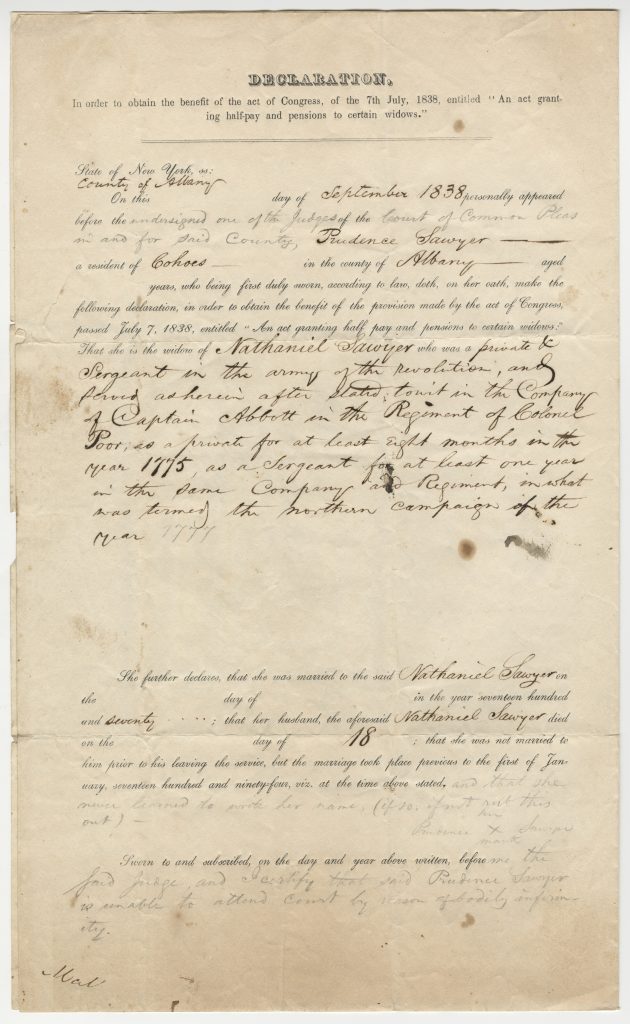 DECLARATION,
In order to obtain the benefit of the act of Congress, of the 7th July, 1838, entitled "An act grant-
ing half-pay and pensions to certain widows."
State of New York, ss:
County of Albany
On this day of September 1838 personally appeared
before the undersigned one of the Judges of the Court of Common Pleas
in and for said County, Prudence Sawyer
a resident of Cohoes in the county of Albany aged
years, who being first duly sworn, according to law, doth, on her oath, make the
following declaration, in order to obtain the benefit of the provision made by the act of Congress,
passed July 7, 1838, entitled "An act granting half pay and pensions to certain widows:"
That she is the widow of Nathaniel Sawyer who was a private &
Sergeant in the army of the revolution, and
served as herein after stated, towit in the Company
of Captain Abbott in the Regiment of Colonel
Poor, as a private for at least eight months in the
year 1775, as a Sergeant for at least one year
in the same Company and Regiment, in what
was termed the northern campaign of the
year 1777
She further declares, that she was married to the said Nathaniel Sawyer on
the day of in the year seventeen hundred
and seventy ; that her husband, the aforesaid Nathaniel Sawyer died
on the day of 18 ; that she was not married to
him prior to his leaving the service, but the marriage took place previous to the first of Jan-
uary, seventeen hundred and ninety-four, viz. at the time above stated, and that she
never learned to write her name, (if so; if not put this
out) —
her
Prudence X Sawyer
mark
Sworn to and subscribed, on the day and year above written, before me the
said Judge, and I certify that said Prudence Sawyer
is unable to attend court by reason of bodily infirm-
ity.